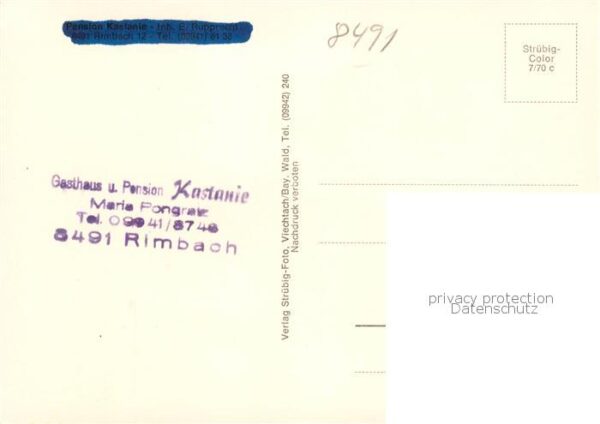 Pension Kastanie - Inh. E. Rupprecht
8491 Rimbach 12 - Tel. (09941) 81 38
8491
Strübig-
Color
7/70 c
Gasthaus u. Pension Kastanie
Maria Pongratz
Tel. 09941/8746
8491 Rimbach
Verlag Strübig-Foto, Viechtach/Bay. Wald, Tel. (09942) 240
Nachdruck verboten
privacy protection
Datenschutz